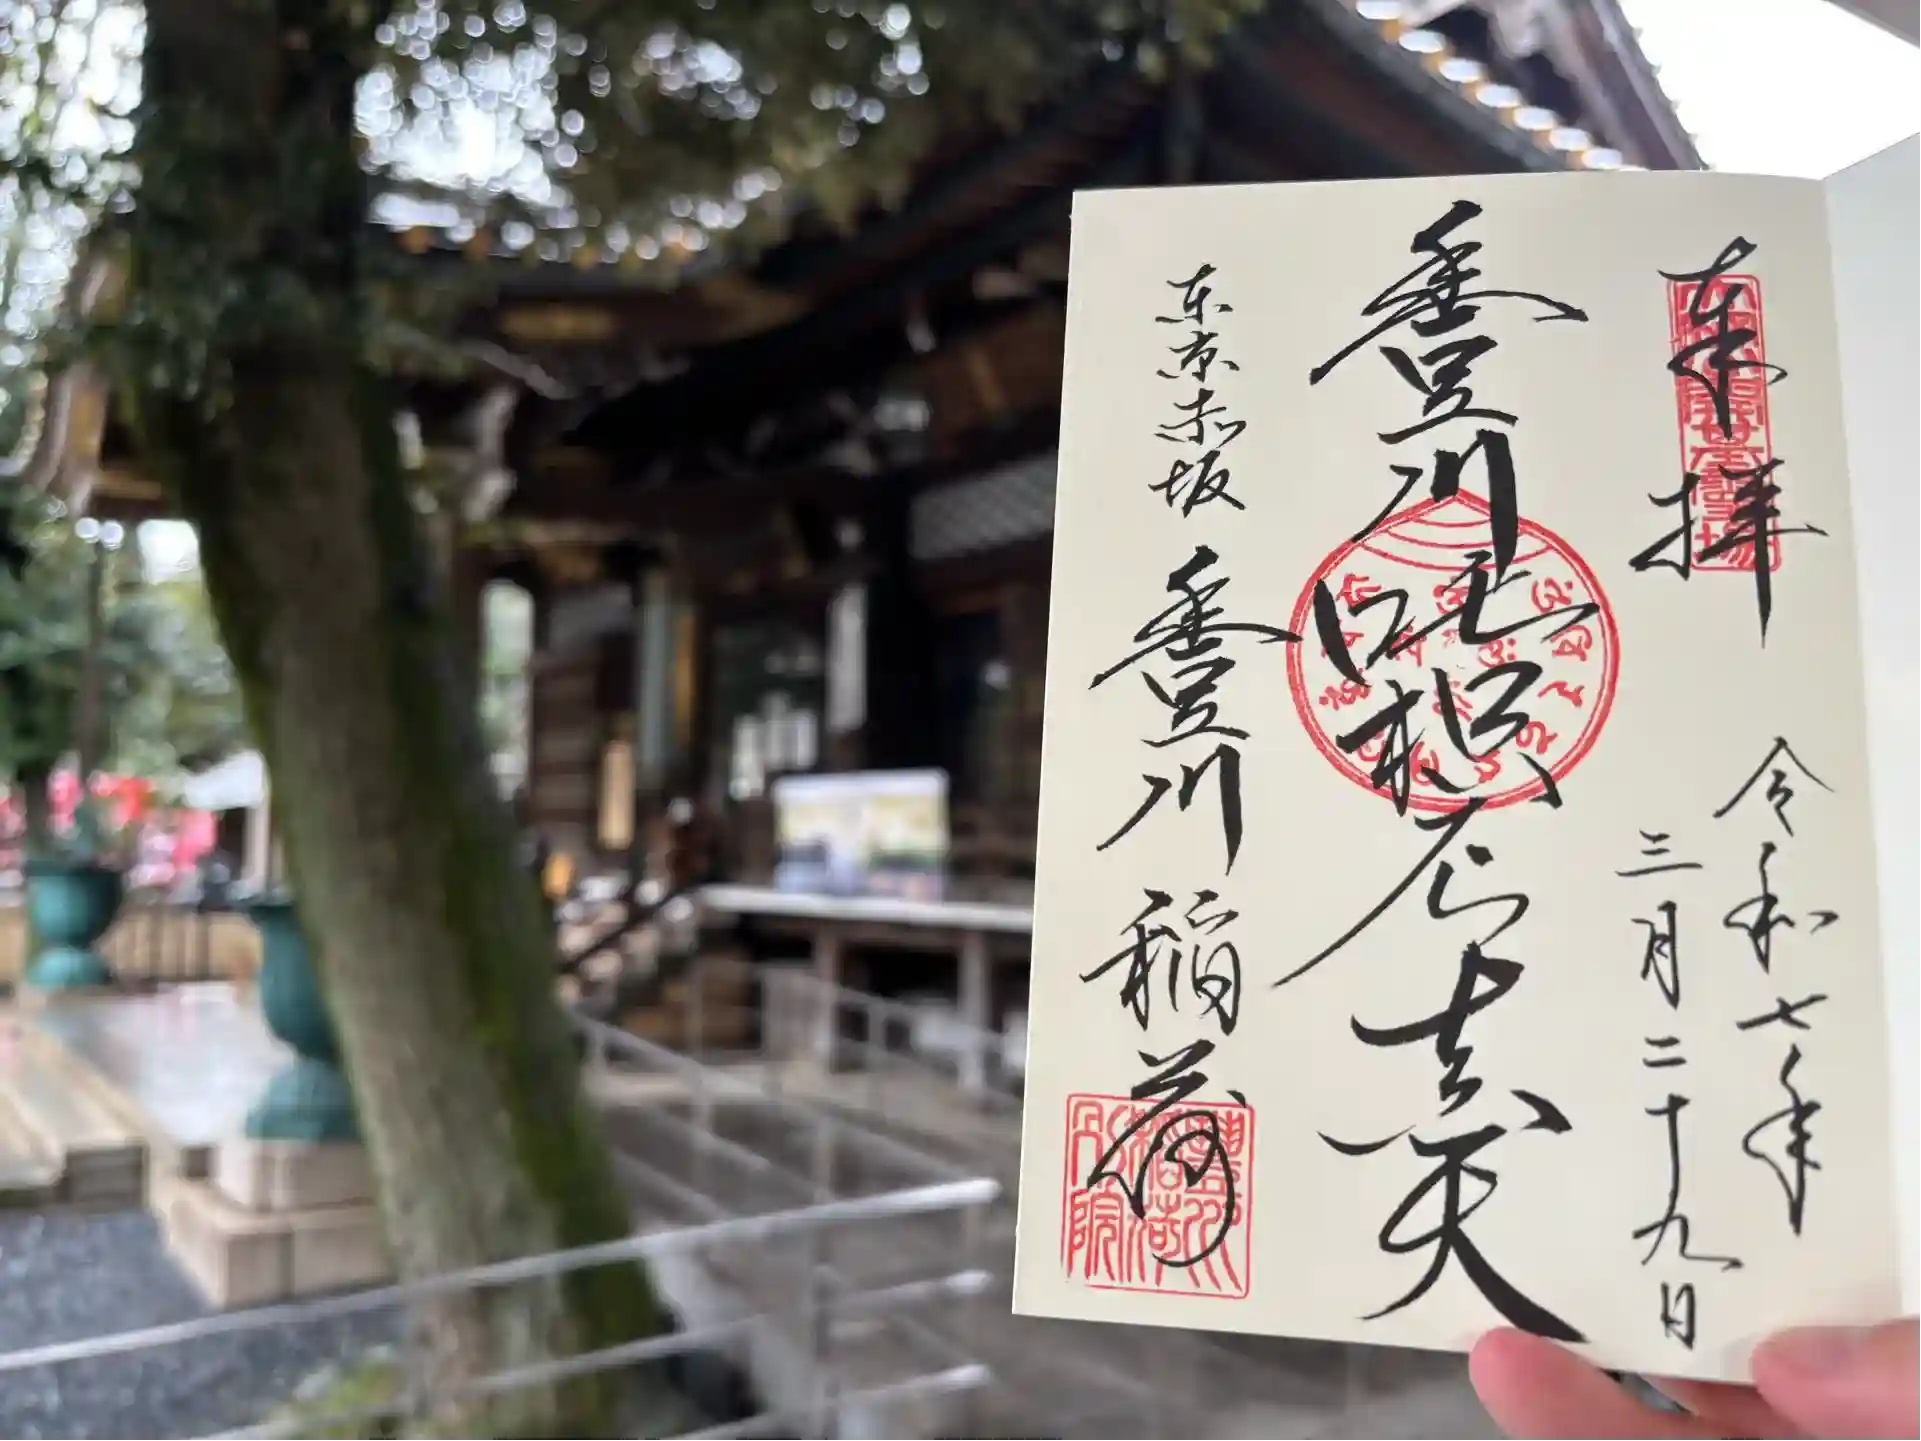 奉拝
令和七年
三月二十九日
豊川吒枳尼真天
東京赤坂
豊川稲荷
豊川稲荷別院